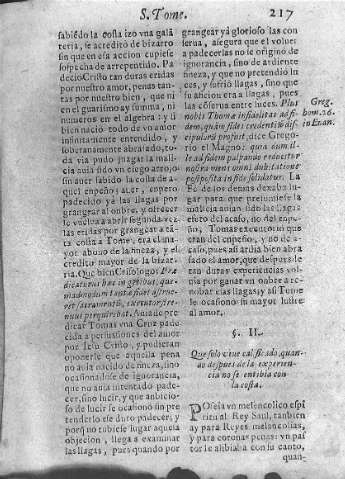 S. Tome.
217
sabiēdo la costa izo vna gala
teria, se acreditò de bizarro
sin que en esa accion cupiese
sospecha de arrepentido. Pa
decio Cristo tan duras eridas
por nuestro amor, penas tan-
tas por nuestro bien, que ni
en el guarismo ay suma, ni
numeros en el algebra: y si
bien naciò todo de vn amor
infinitamente entendido, y
soberanamente abrasado, to
da via pudo juzgar la mali
cia auia sido vn ciego arrojo
sin auer sabido la costa de a
quel enpeño; auer, enpero
padecido ya las llagas por
grangear al onbre, y ofrecer
se vuelua abrir segunda vez
las eridas por grangear a tā
ta costa a Tome, era el ma-
yor abono de la fineza, y el
credito mayor de la bizar-
ria. Que bien Crisologo: Præ
dicaturus hæc in gentibus,
Auia de pre
dicar Tomas vna Cruz pade
cida a persuasiones del amor
por Iesu Cristo, y pudieran
oponerle que aquella pena
no auia nacido de fineza, sino
ocasionadose de ignorancia,
que no auia intentado pade-
cer, sino lucir, y que anbicio-
so de lucir se ocasionò sin pre
tenderlo ese duro padecer; y
porq̃ no tubiese lugar aquela
objecion, llega a examinar
las llagas, pues quando por
grangear yà glorioso las con
serua, asegura que el voluer
a padecerlas no le originò de
ignorancia, sino de ardiente
fineza, y que no pretendiò lu
ces, y sufriò llagas, sino que
su aficion era a llagas, pues
las cōserua entre luces. Plus
nobis Thomæ infidelitas ad fi-
dem, quàm fides credentiū dis
cipulorū profuit, dice Grego-
rio el Magno: quia dum il-
le ad fidem palpando reducitur
nostra mens omni dubitatione
postposita in fide solidatur. La
Fè de los demas dexaba lu-
gar para que presumiese la
malicia auian sido las llagas
efecto del acaso, no del enpe-
ño, Tomas executoriò que
eran del enpeño, y no de aca-
caso, pues asì ardia bien abra
sado el amor, que despues de
tan duras experiencias vol-
uia por ganar vn onbre a re-
nobar esas llagas; y asì Tome
le ocasionò su mayor lustre
al amor.
Greg.
hom. 26.
in Euan.
§. II.
Que solo viue calificado, quan-
do despues de la experien-
cia no se entibia con
la costa.
POseia vn melencolico espi
ritu al Rey Saul, tanbien
ay para Reyes melancolias,
y para coronas penas: vn pas
tor le alibiaba con su canto,
quan-